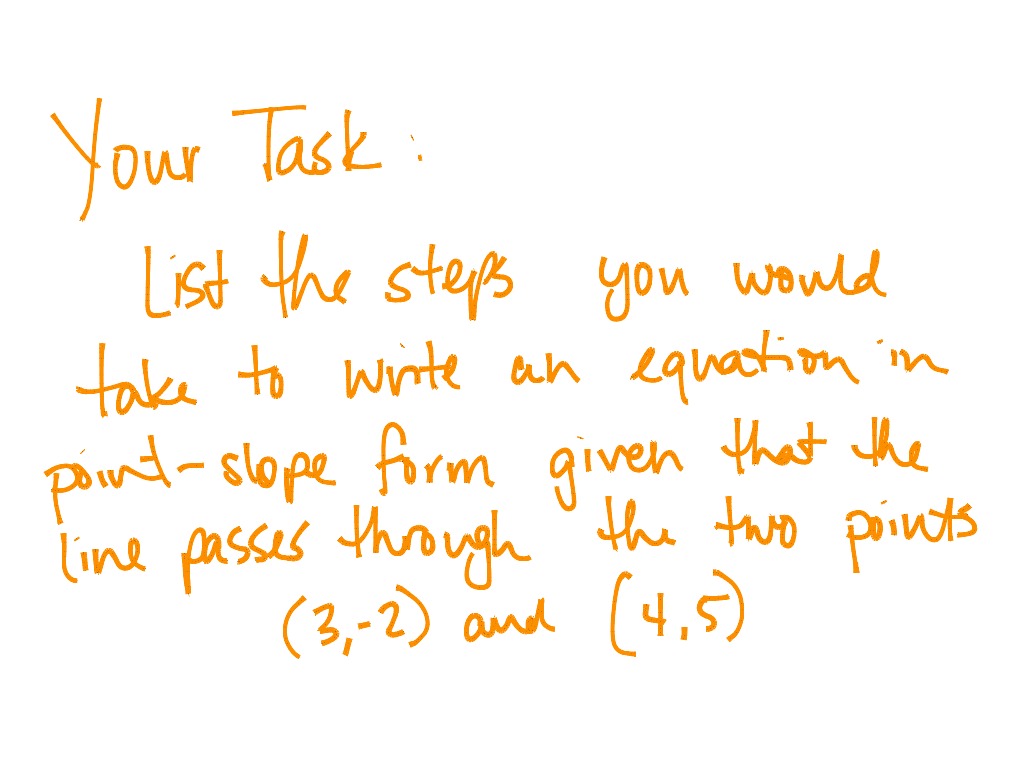 Your Task:
List the steps you would
take to write an equation in
point-slope form given that the
line passes through the two points
(3,-2) and (4,5)